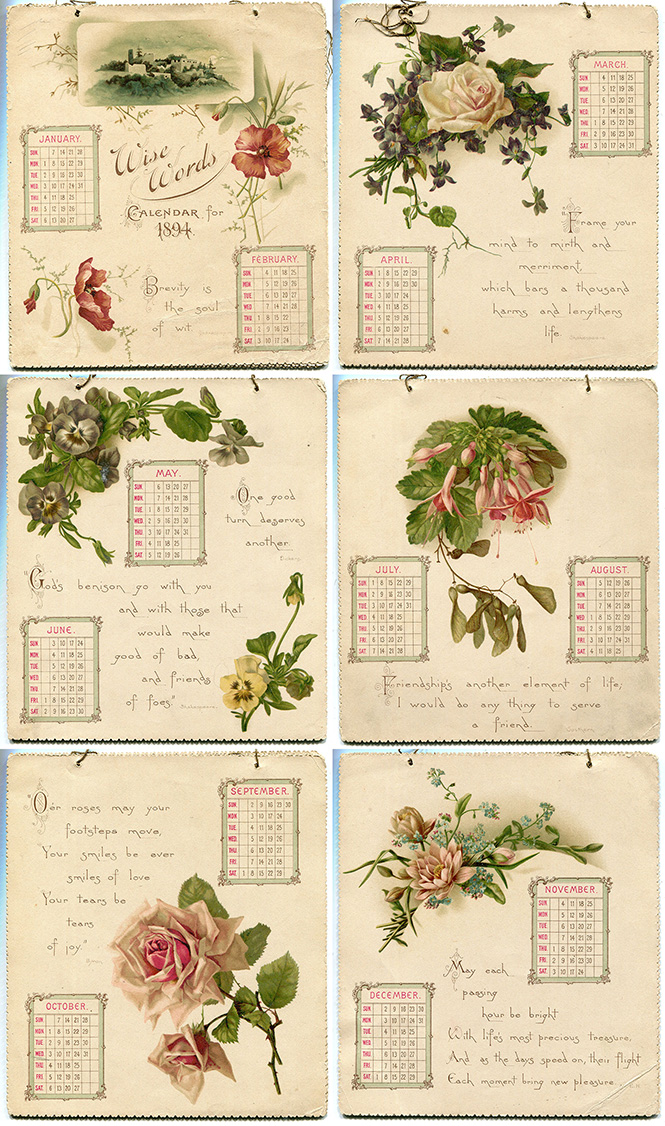 Wise
Words
CALENDAR for
1894.
JANUARY.
SUN. 7 14 21 28
MON. 1 8 15 22 29
TUE. 2 9 16 23 30
WED. 3 10 17 24 31
THU. 4 11 18 25
FRI. 5 12 19 26
SAT. 6 13 20 27
FEBRUARY.
SUN. 4 11 18 25
MON. 5 12 19 26
TUE. 6 13 20 27
WED. 7 14 21 28
THU. 1 8 15 22
FRI. 2 9 16 23
SAT. 3 10 17 24
Brevity is
the soul
of wit.
MARCH.
SUN. 4 11 18 25
MON. 5 12 19 26
TUE. 6 13 20 27
WED. 7 14 21 28
THU. 1 8 15 22 29
FRI. 2 9 16 23 30
SAT. 3 10 17 24 31
"Frame your
mind to mirth and
merriment,
which bars a thousand
harms and lengthens
life.
Shakespeare.
APRIL.
SUN. 1 8 15 22 29
MON. 2 9 16 23 30
TUE. 3 10 17 24
WED. 4 11 18 25
THU. 5 12 19 26
FRI. 6 13 20 27
SAT. 7 14 21 28
MAY.
SUN. 6 13 20 27
MON. 7 14 21 28
TUE. 1 8 15 22 29
WED. 2 9 16 23 30
THU. 3 10 17 24 31
FRI. 4 11 18 25
SAT. 5 12 19 26
One good
turn deserves
another.
"God's benison go with you
and with those that
would make
good of bad,
and friends
of foes."
Shakespeare.
JUNE.
SUN. 3 10 17 24
MON. 4 11 18 25
TUE. 5 12 19 26
WED. 6 13 20 27
THU. 7 14 21 28
FRI. 1 8 15 22 29
SAT. 2 9 16 23 30
JULY.
SUN. 1 8 15 22 29
MON. 2 9 16 23 30
TUE. 3 10 17 24 31
WED. 4 11 18 25
THU. 5 12 19 26
FRI. 6 13 20 27
SAT. 7 14 21 28
AUGUST.
SUN. 5 12 19 26
MON. 6 13 20 27
TUE. 7 14 21 28
WED. 1 8 15 22 29
THU. 2 9 16 23 30
FRI. 3 10 17 24 31
SAT. 4 11 18 25
Friendship's another element of life;
I would do any thing to serve
a friend.
"O'er roses may your
footsteps move,
Your smiles be ever
smiles of love
Your tears be
tears
of joy."
Byron.
SEPTEMBER.
SUN. 2 9 16 23 30
MON. 3 10 17 24
TUE. 4 11 18 25
WED. 5 12 19 26
THU. 6 13 20 27
FRI. 7 14 21 28
SAT. 1 8 15 22 29
OCTOBER.
SUN. 7 14 21 28
MON. 1 8 15 22 29
TUE. 2 9 16 23 30
WED. 3 10 17 24 31
THU. 4 11 18 25
FRI. 5 12 19 26
SAT. 6 13 20 27
NOVEMBER.
SUN. 4 11 18 25
MON. 5 12 19 26
TUE. 6 13 20 27
WED. 7 14 21 28
THU. 1 8 15 22 29
FRI. 2 9 16 23 30
SAT. 3 10 17 24
DECEMBER.
SUN. 2 9 16 23 30
MON. 3 10 17 24 31
TUE. 4 11 18 25
WED. 5 12 19 26
THU. 6 13 20 27
FRI. 7 14 21 28
SAT. 1 8 15 22 29
May each
passing
hour be bright
With life's most precious treasure,
And as the days speed on, their flight
Each moment bring new pleasure.